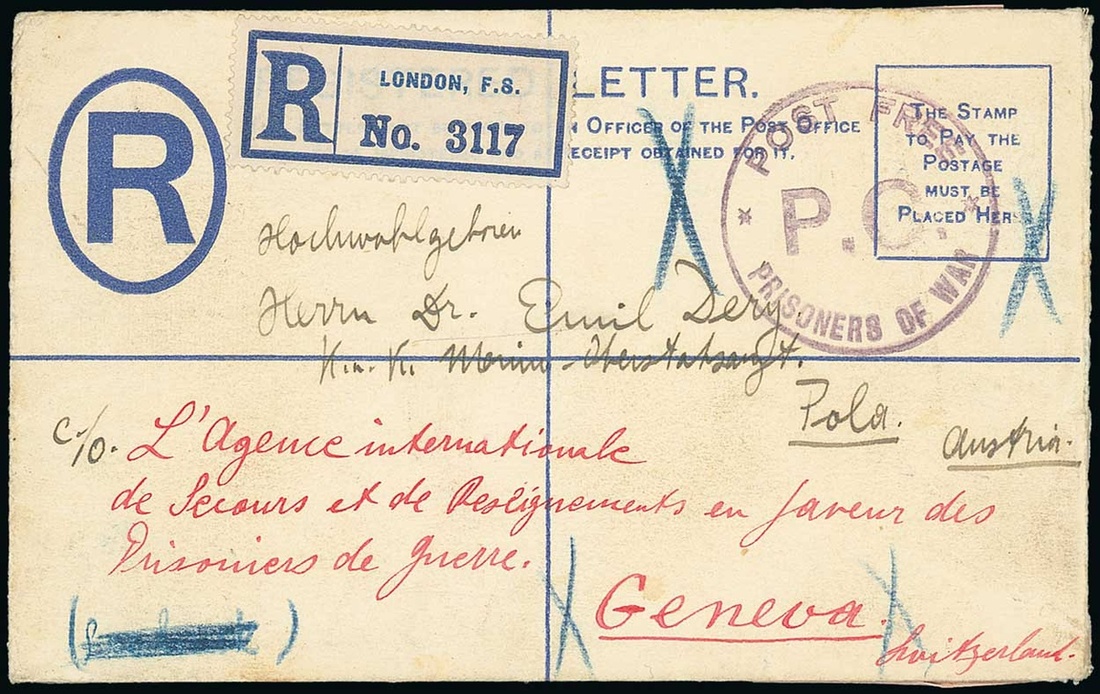 R
R
LONDON, F.S.
No. 3117
LETTER.
OFFICER OF THE POST OFFICE
RECEIPT OBTAINED FOR IT.
POST FREE
P.C.
PRISONERS OF WAR
THE STAMP
TO PAY THE
POSTAGE
MUST BE
PLACED HERE
Hochwohlgeboren
Herrn Dr. Emil Dery.
K.u.K. Marine-Oberstabsarzt.
Pola.
Austria.
c/o. L'Agence internationale
de Secours et de Renseignements en faveur des
Prisonniers de guerre.
Geneva.
Switzerland.